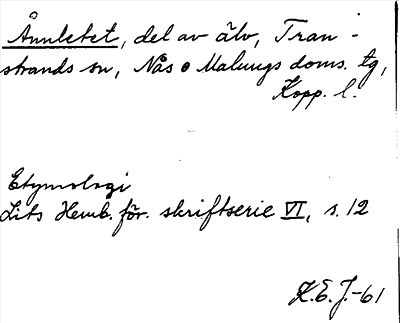 Ånnletet, del av älv, Tran-
strands sn, Nås o Malungs doms. tg,
Kopp. l.
Etymologi
Lits Hemb.för. skriftserie VI, s. 12
K.E.J.-61